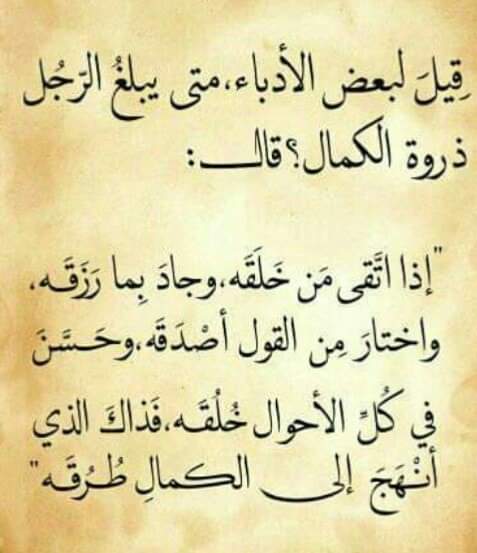 قِيلَ لبعض الأدباء،متى يبلغُ الرّجُل
ذروة الكمال؟قال:
"إذا اتَّقى مَن خَلَقَه،وجادَ بِما رَزَقَه،
واختارَ مِن القول أصْدَقَه،وحَسَّنَ
في كُلِّ الأحوال خُلُقَه،فَذاكَ الذي
أنْهَجَ إلى الكمالِ طُرُقَه"